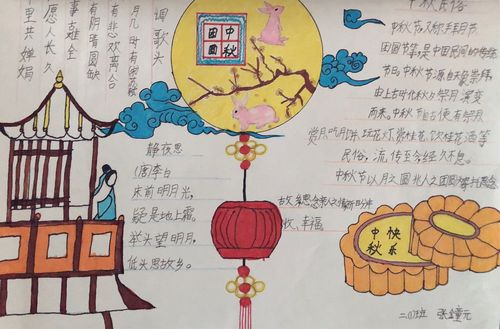 调歌头
月几时有
有悲欢离合
有阴晴圆缺
事古难全
愿人长久
里共婵娟
中秋
团圆
静夜思
(唐)李白
床前明月光,
疑是地上霜。
举头望明月,
低头思故乡。
中秋民俗
中秋节又称
团圆节等,是中国民间的传统
节日。中秋节源自天象崇拜,
由上古时代秋夕祭月演变
而来。中秋节自古便有祭月、
赏月、吃月饼、玩花灯、赏桂花、饮桂花酒等
民俗,流传至今,经久不息。
中秋节以月之圆兆人之团圆,
收、幸福
中秋
快乐